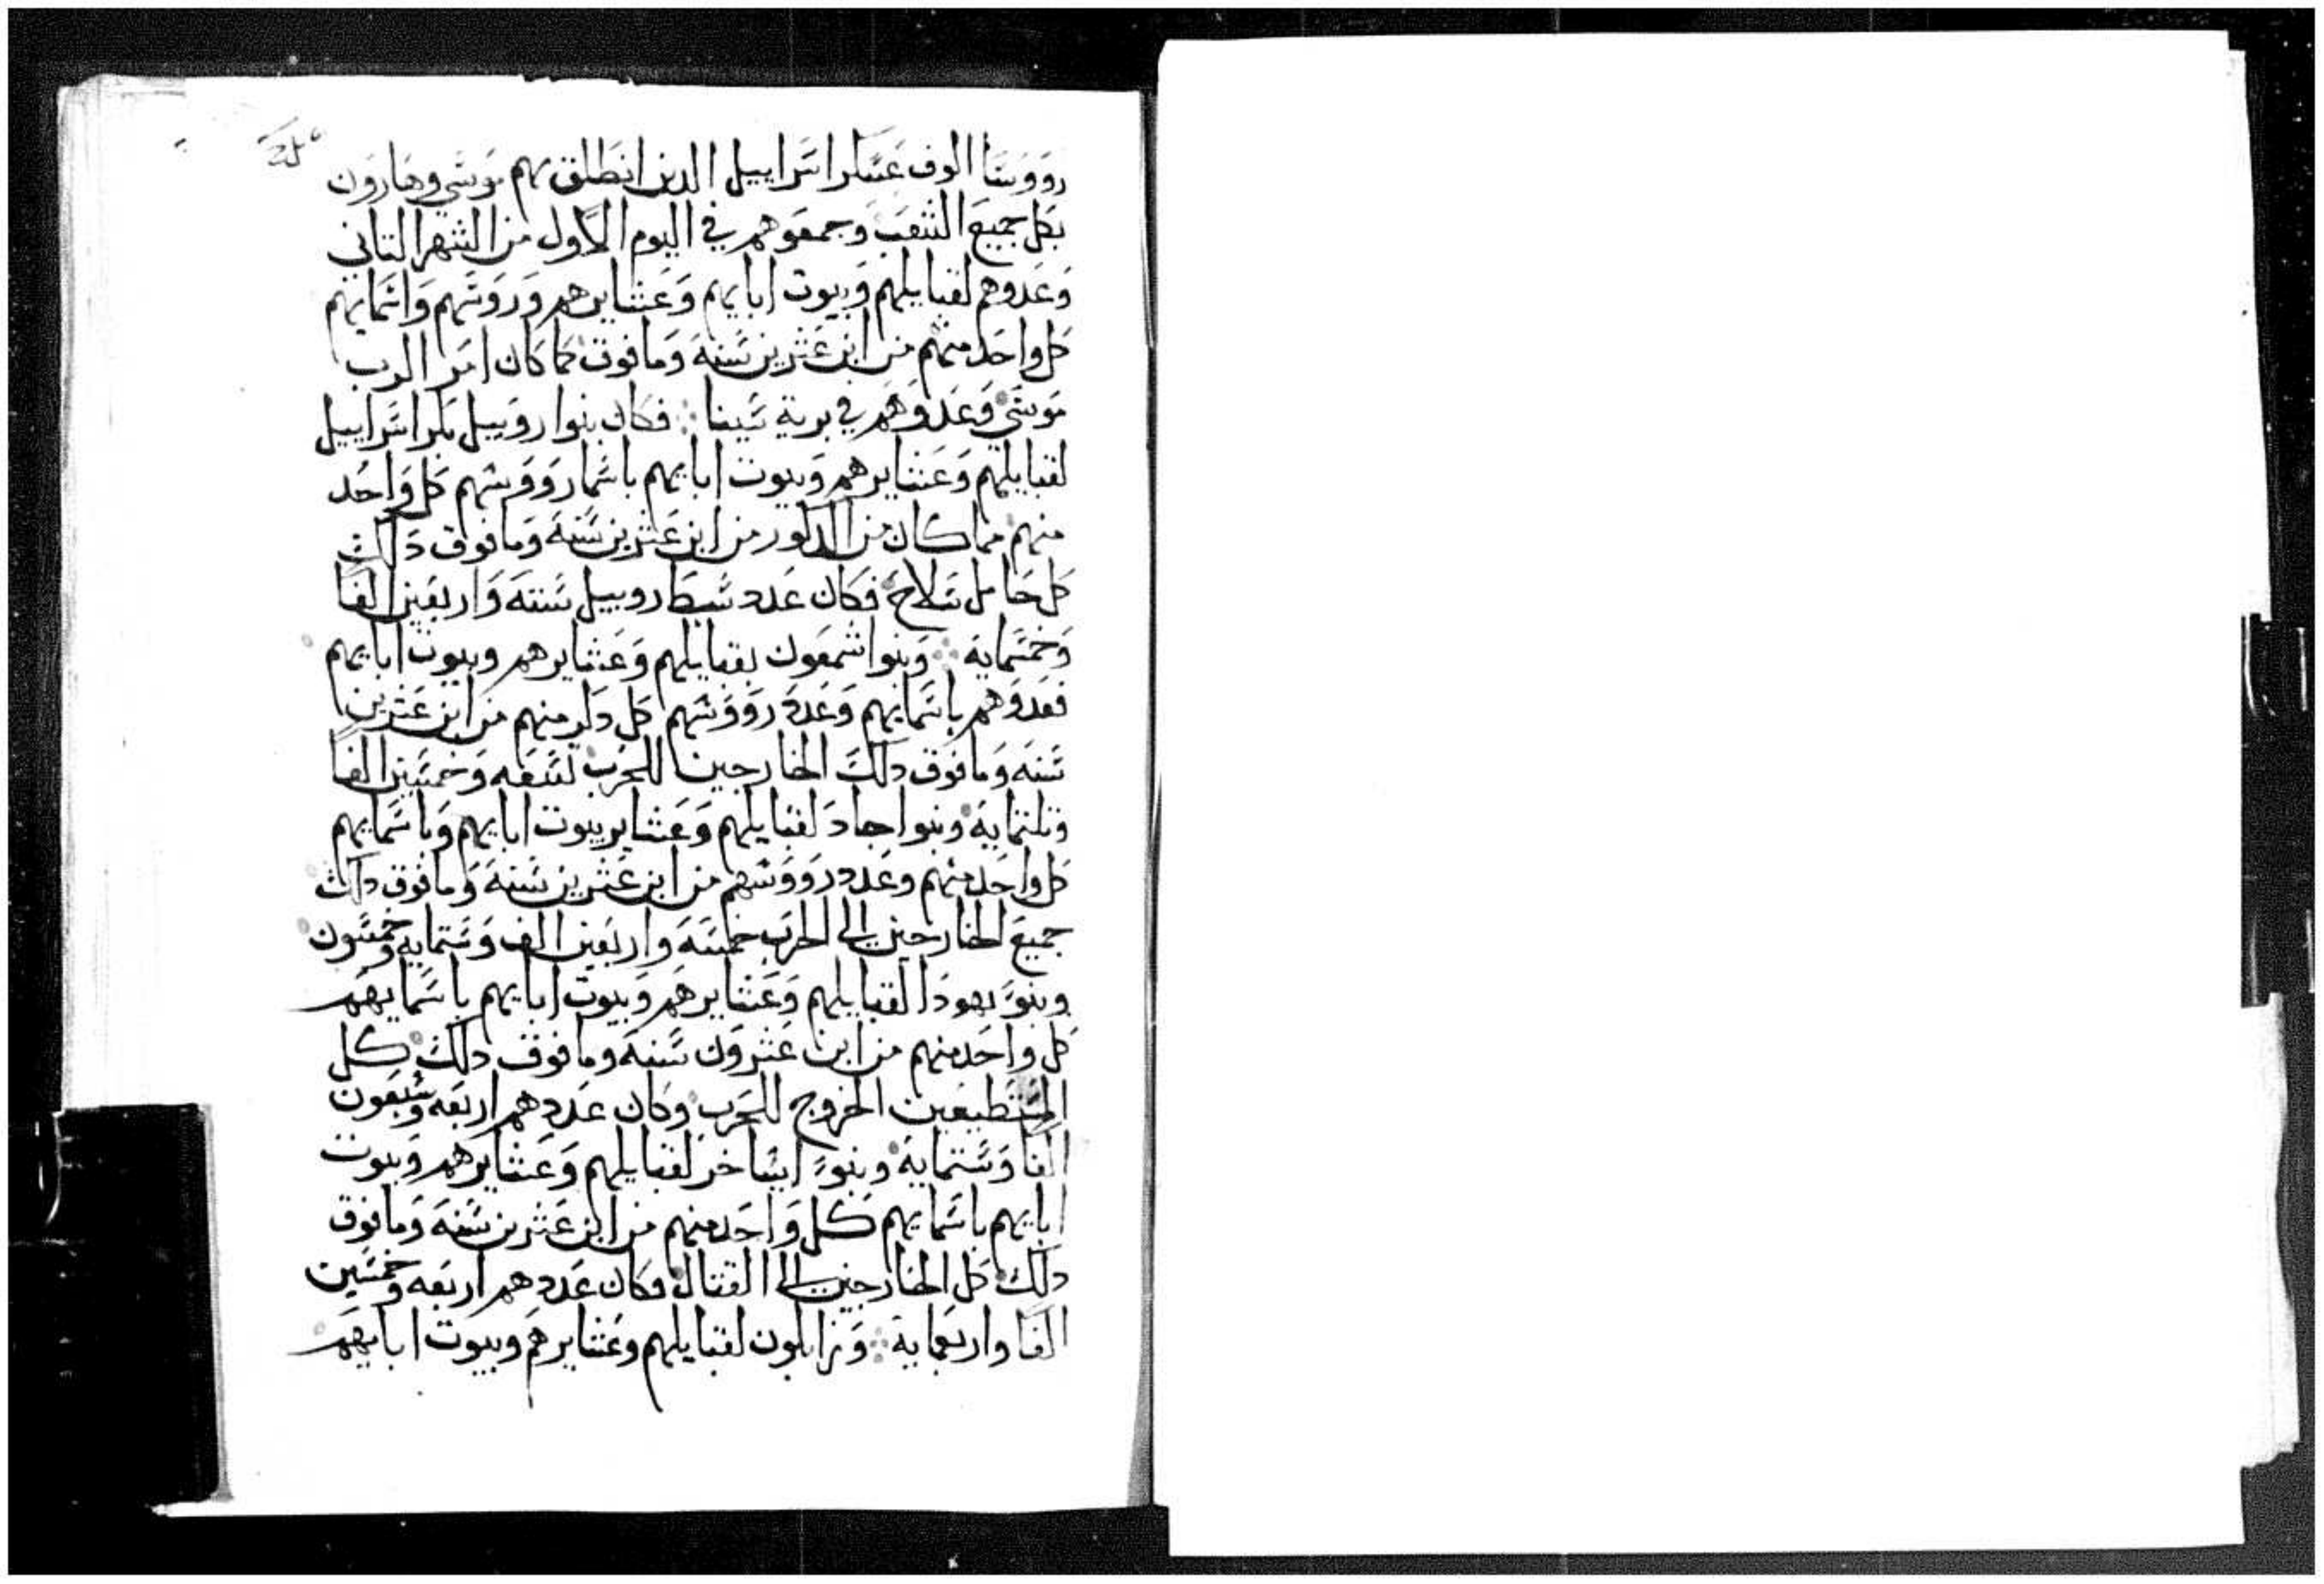 رووسا الوف عسكر اسراييل الدين انطلق بهم موسي وهارون
بكل جميع الشعب وجمعوهم في اليوم الاول من الشهر التاني
وعدوهم لقبايلهم وبيوت ابايهم وعشايرهم وروسهم واسمايهم
كل واحد منهم من ابن عشرين سنه وما فوق كما كان امر الرب
موسي وعدوهم في برية سينا فكان بنوا روبيل بكر اسراييل
لقبايلهم وعشايرهم وبيوت ابايهم باسما رووسهم كل واحد
منهم مما كان من الدكور من ابن عشرين سنه وما فوق دلك
كل حامل سلاح فكان عدد سبط روبيل ستته واربعين الفا
وخمسمايه وبنوا شمعون بقبايلهم وعشايرهم وبيوت ابايهم
فعدوهم باسمايهم وعدد رووسهم كل دكر منهم من ابن عشرين
سنه وما فوق دلك الخارجين للحرب لتسعه وخمسين الفا
وتلتمايه وبنوا جاد لقبايلهم وعشاير بيوت ابايهم وباسمايهم
كل واحد منهم وعدد رووسهم من ابن عشرين سنه وما فوق دلك
جميع الخارجين الي الحرب خمسه واربعين الف وستمايه وخمسون
وبنو يهودا لقبايلهم وعشايرهم وبيوت ابايهم باسمايهم
كل واحد منهم من ابن عشرون سنه وما فوق دلك كل
المستطيعين الخروج للحرب وكان عددهم اربعه وسبعون
الفا وستمايه وبنو ايساخر لقبايلهم وعشايرهم وبيوت
ابايهم باسمايهم كل واحد منهم من ابن عشرين سنه وما فوق
دلك كل الخارجين الي القتال فكان عددهم اربعه وخمسين
الفا واربعمايه وزابلون لقبايلهم وعشايرهم وبيوت ابايهم